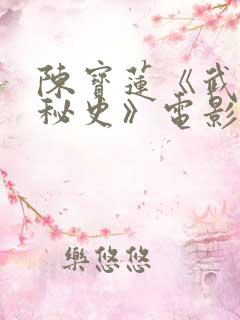 陳寶蓮《武
秘史》電影
樂悠悠